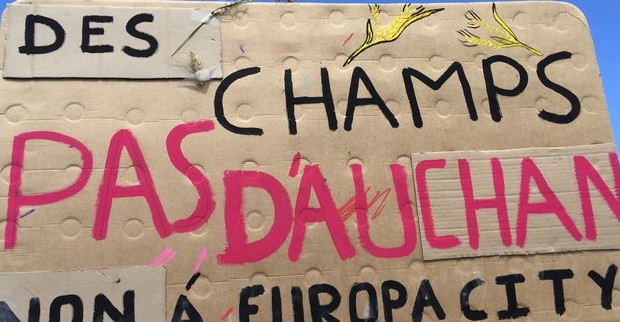 DES
CHAMPS
PAS D'AUCHAN
NON À EUROPACITY